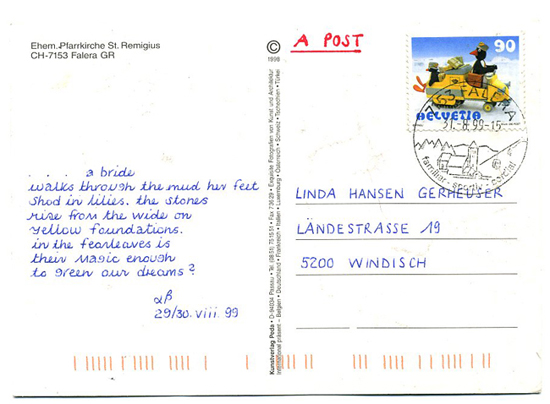 Ehem. Pfarrkirche St. Remigius
CH-7153 Falera GR
© 1998
A POST
90
HELVETIA
7153 FALERA
31.-8.99-15
familiar - sportiv - cordial
. . . . a bride
walks through the mud her feet
shod in lilies. the stones
rise from the wide on
yellow foundations.
in the fearleaves is
their magic enough
to green our dreams?
αβ
29/30. viii. 99
LINDA HANSEN GERHEUSER
LÄNDESTRASSE 19
5200 WINDISCH
Kunstverlag Peda • D-94034 Passau • Tel. (08 51) 75 15 51 • Fax 7 26 29 • Exquisite Fotografien von Kunst und Architektur
International präsent – Belgien • Deutschland • Frankreich • Italien • Luxemburg • Österreich • Schweiz • Tschechien • Türkei